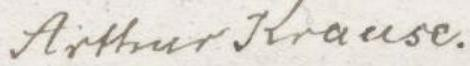 Arthur Krause.